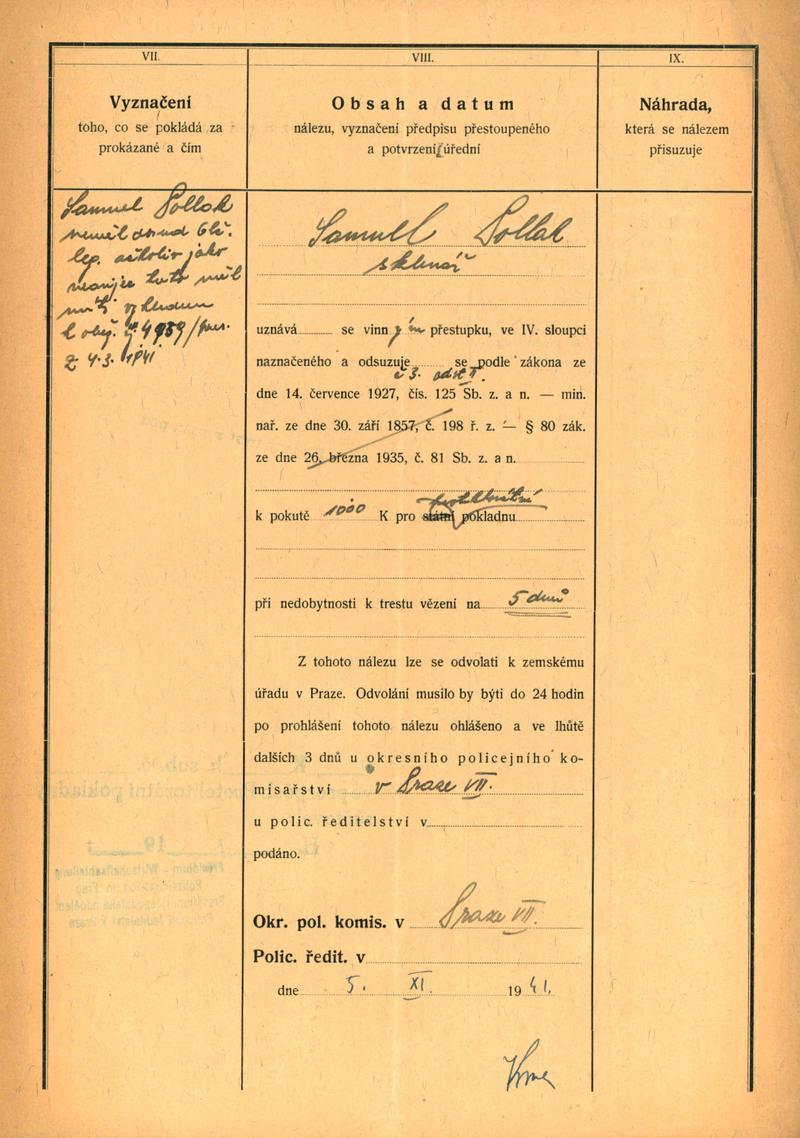 VII.
Vyznačení
toho, co se pokládá za
prokázané a čím
Samuel Pollak
lep.
č. 4939/
z 4.3. 1941
VIII.
Obsah a datum
nálezu, vyznačení předpisu přestoupeného
a potvrzení úřední
Samuel Pollak
sklenář
uznává se vinn ým přestupku, ve IV. sloupci
naznačeného a odsuzuje se podle zákona ze
č 3. odst 1.
dne 14. července 1927, čís. 125 Sb. z. a n. — min.
nař. ze dne 30. září 1857, č. 198 ř. z. — § 80 zák.
ze dne 26. března 1935, č. 81 Sb. z. a n.
protektorátní
k pokutě 1000 K pro státní pokladnu
při nedobytnosti k trestu vězení na 5 dnů
Z tohoto nálezu lze se odvolati k zemskému
úřadu v Praze. Odvolání musilo by býti do 24 hodin
po prohlášení tohoto nálezu ohlášeno a ve lhůtě
dalších 3 dnů u okresního policejního ko-
misařství v Praze VII.
u polic. ředitelství v
podáno.
Okr. pol. komis. v Praze VII.
Polic. ředit. v
dne 5. XI. 1941.
IX.
Náhrada,
která se nálezem
přisuzuje